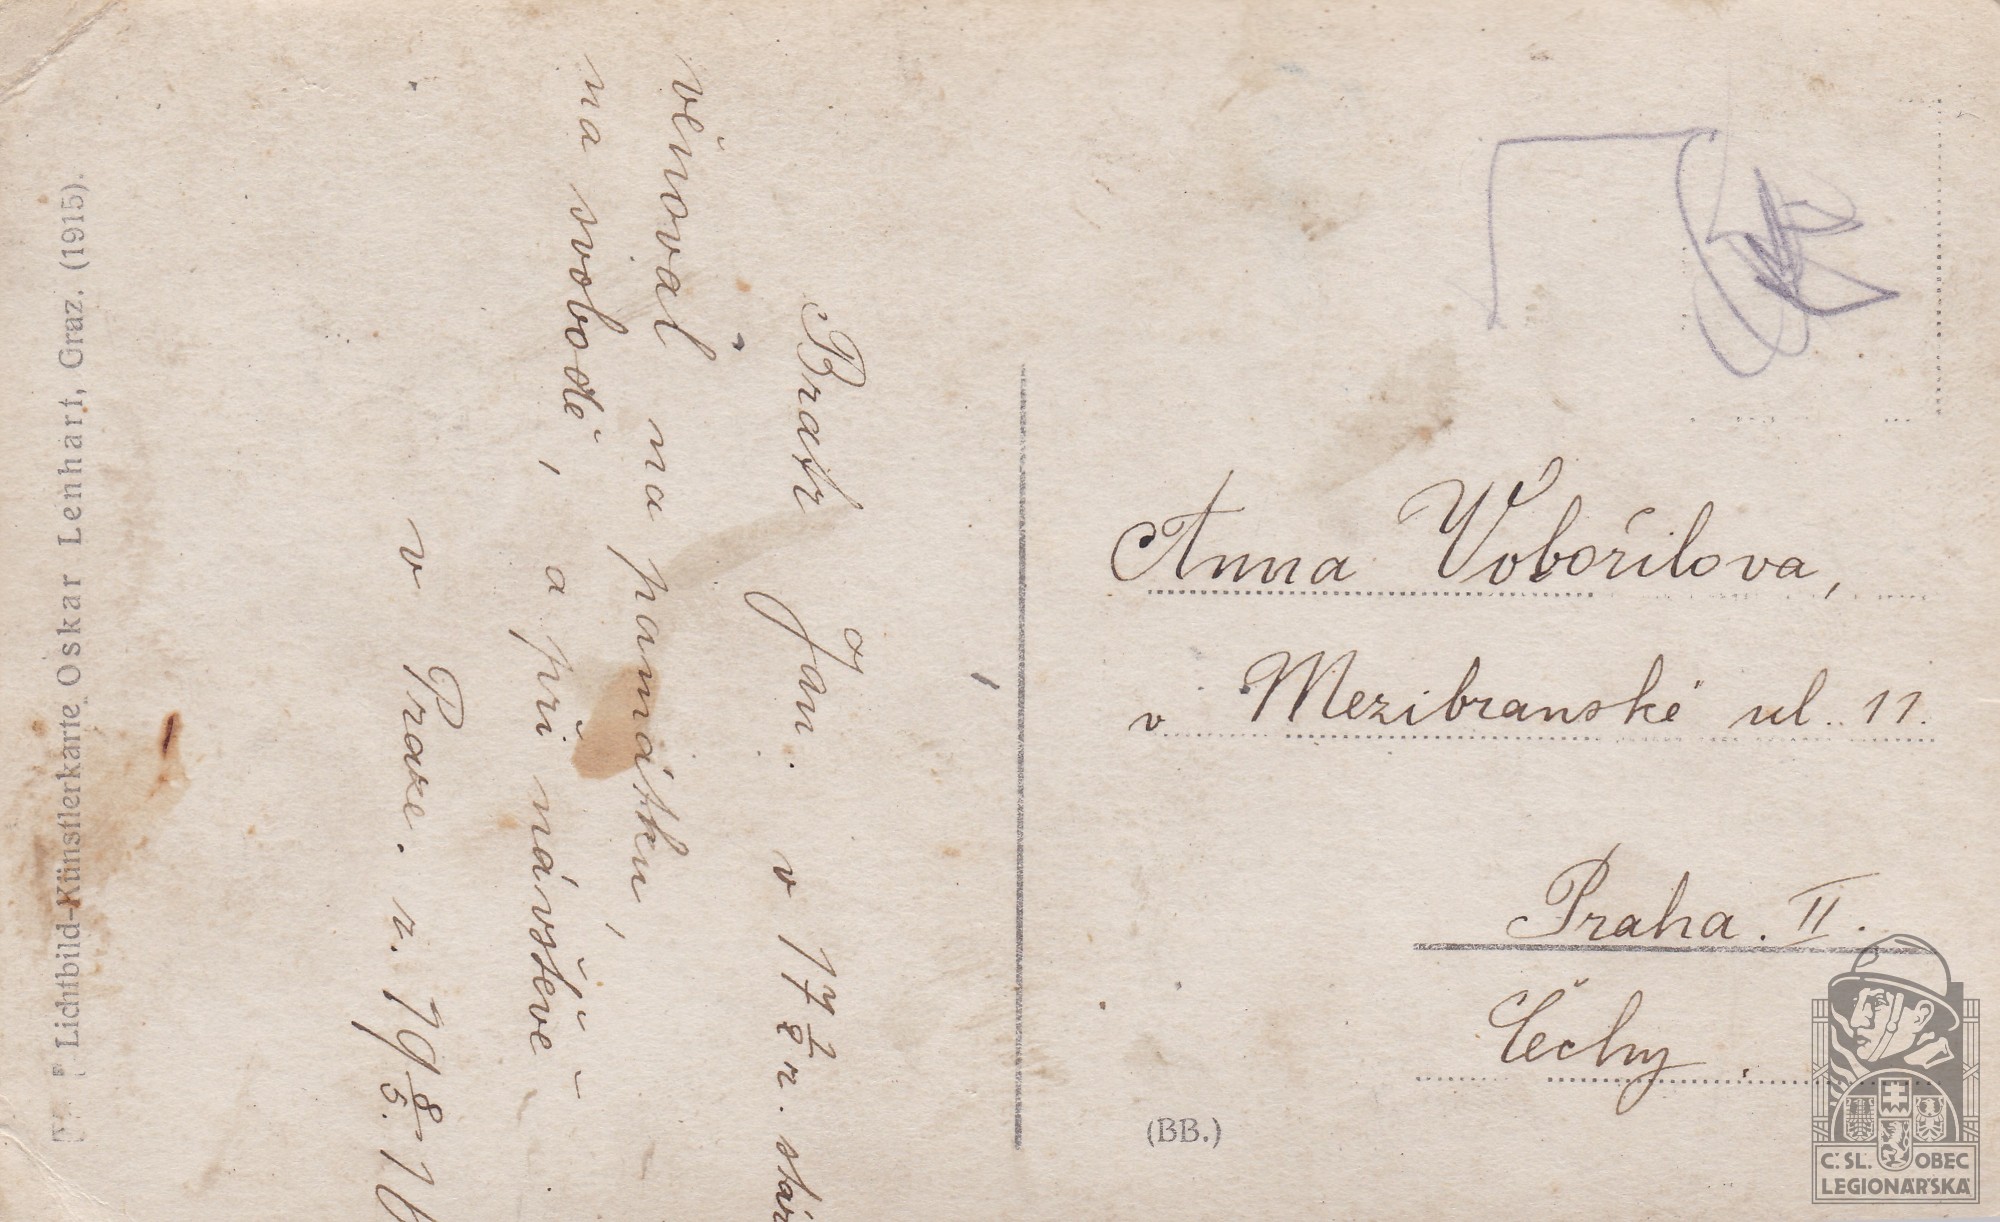 Bratr Jan. v 17 1/2 r. stár
věnoval na pamàtku,
na svobodě, a při návštěvě -
v Praze. r. 19 8/5. 16
Lichtbild-Künstlerkarte Oskar Lenhart, Graz. (1915).
Anna Vobořilova,
v Mezibranské ul. 11.
Praha. II.
Čechy.
(BB.)
Č. SL. OBEC
LEGIONÁŘSKÁ